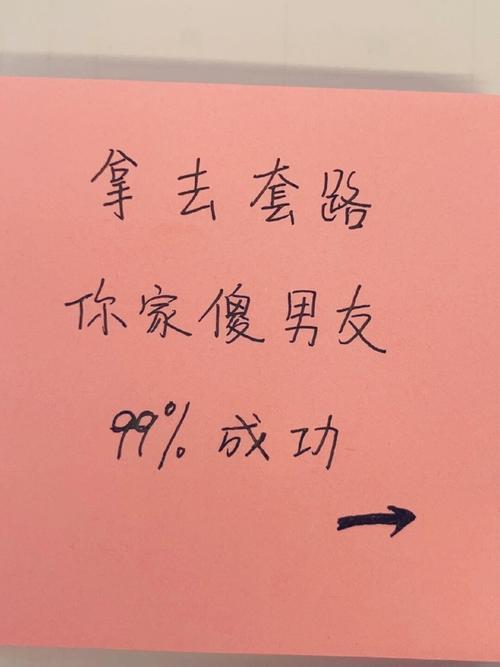 拿去套路
你家傻男友
99%成功
→